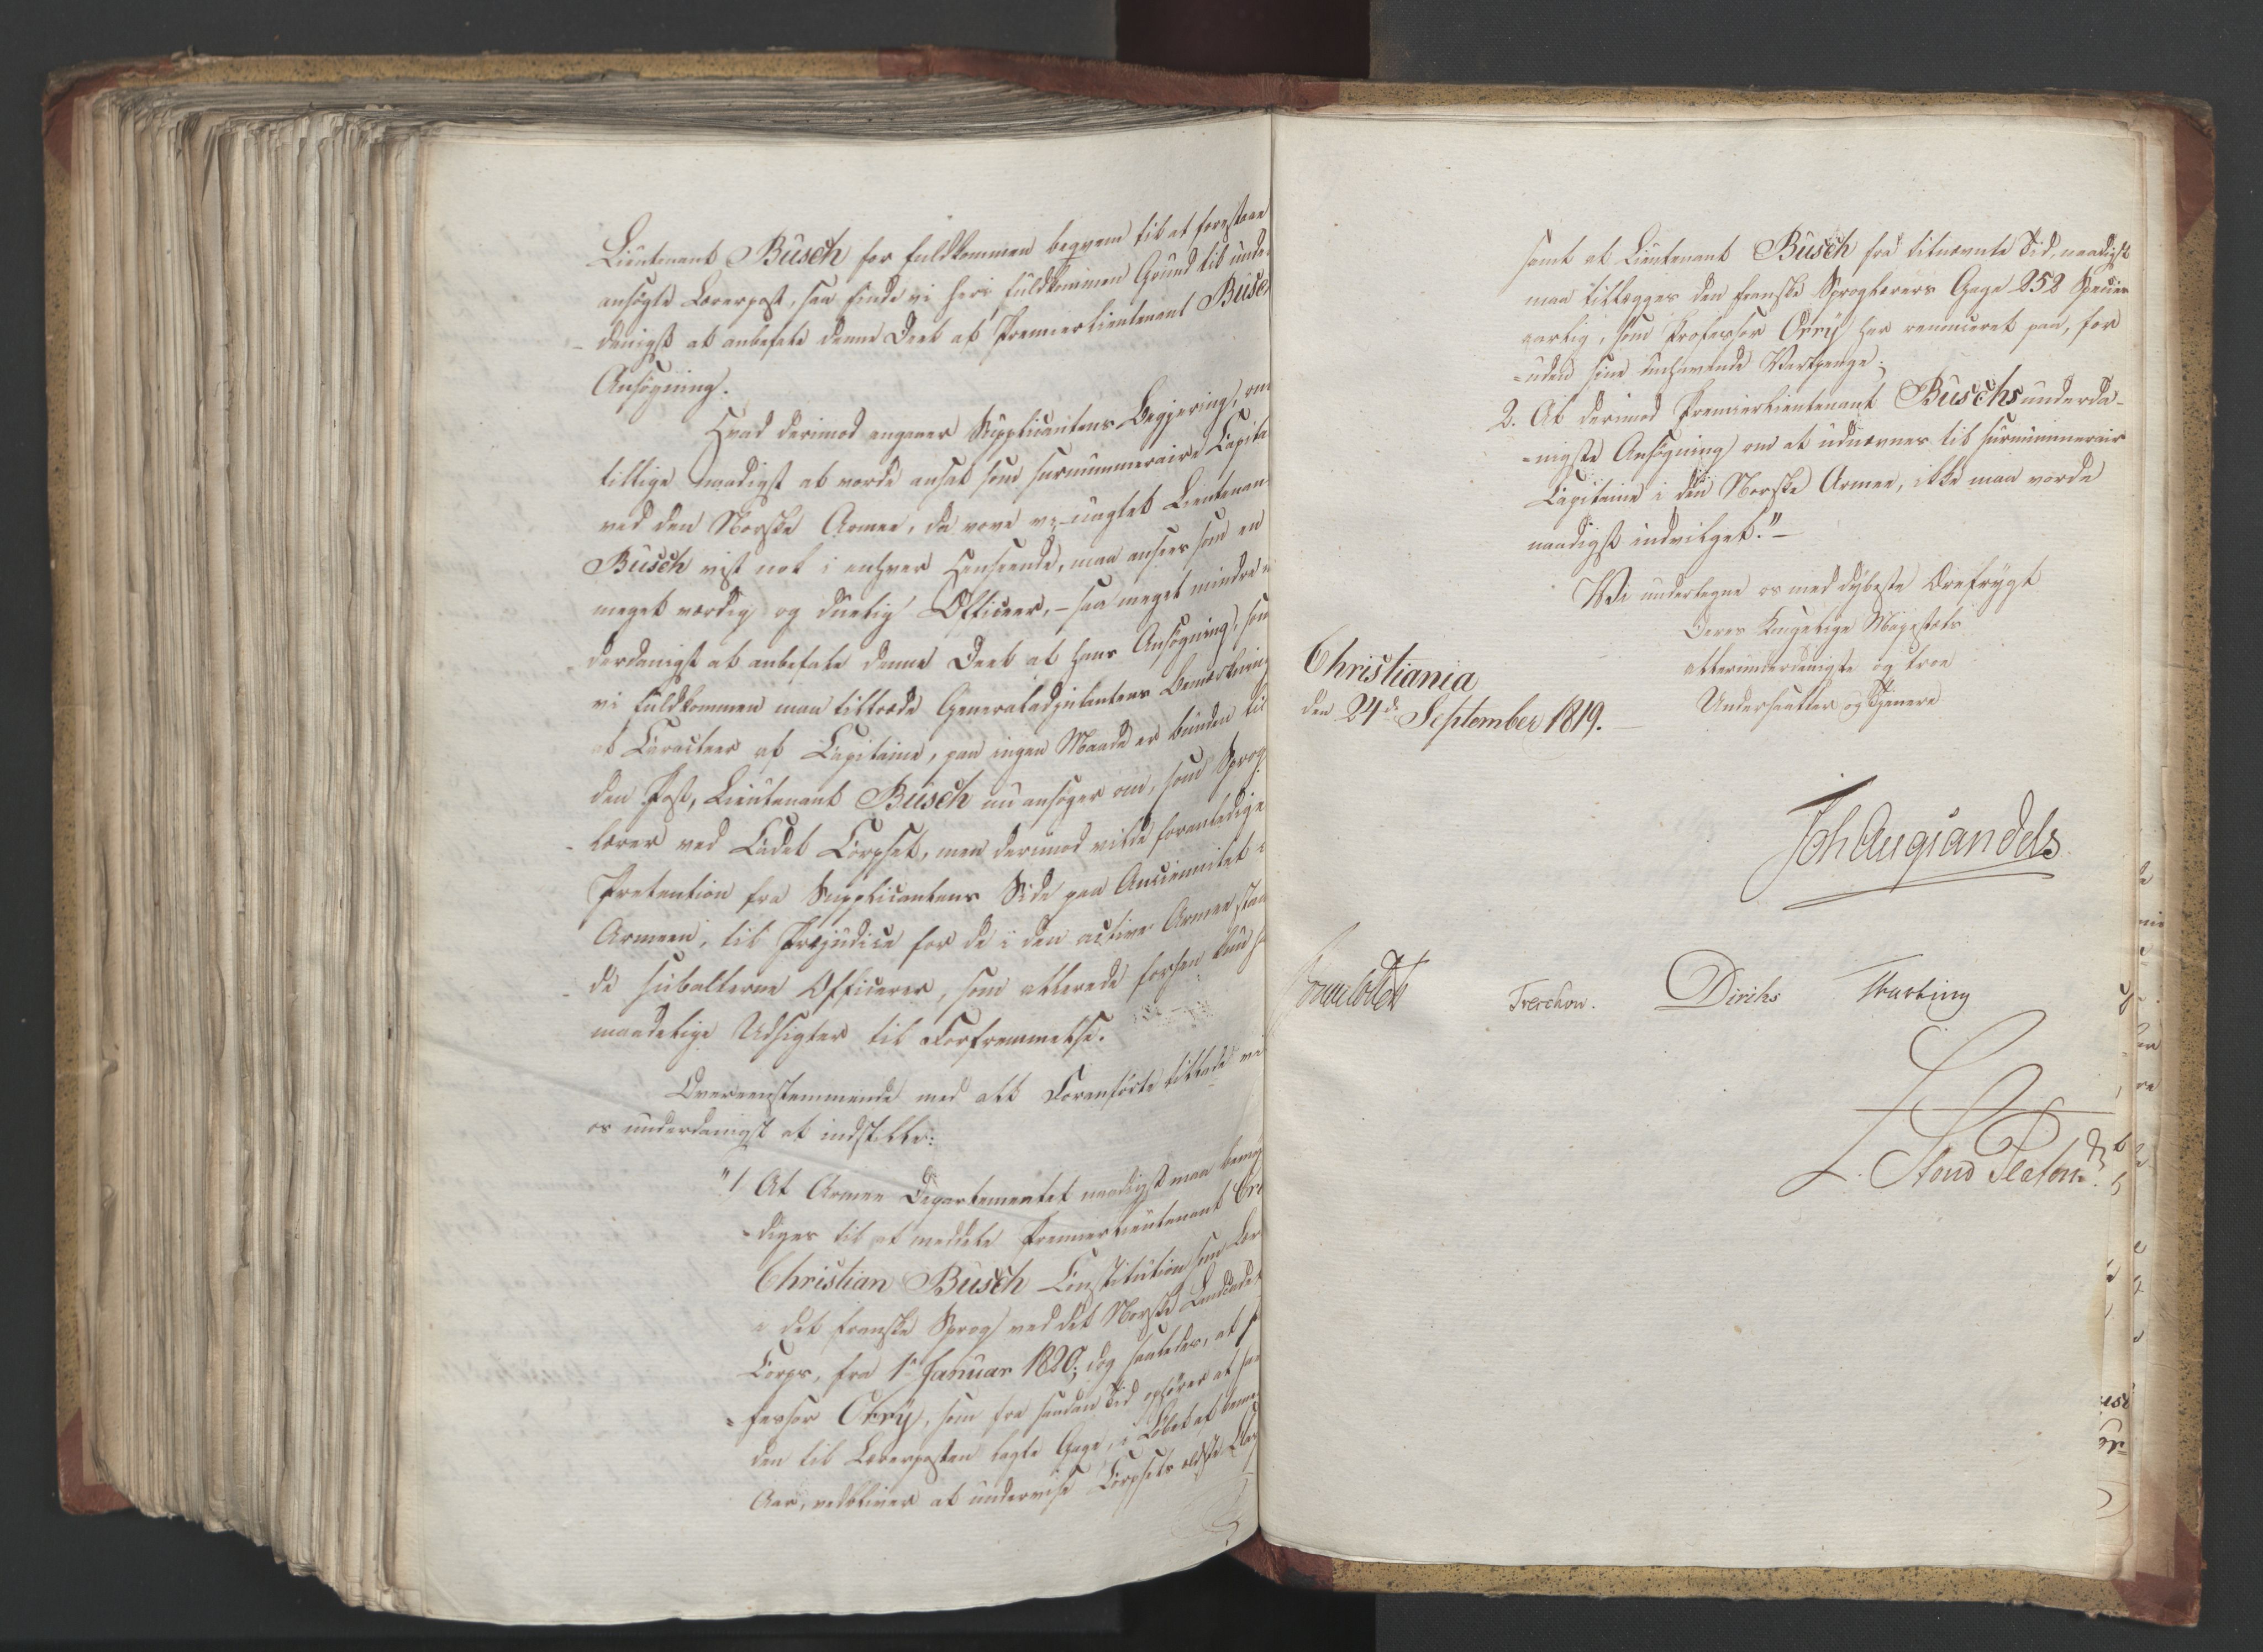 Lieutenant Büsch for fuldkommen beqvem til at forestaae
ansøgte Lærerpost, saa finde vi heri fuldkommen Grund til unde-
-danigst at anbefale denne Deel af Premierlieutenant Büsch
Ansøgning.
Hvad derimod angaaer Supplicantens Begjering, om
tillige naadigst at vorde ansat som surnummeraire Capita
ved den Norske Armee, da vove vi, uagtet Lieutenan
Büsch vist nok i enhver Henseende, maa ansees som en
meget værdig og duelig Officeer, - saa meget mindre
derdanigst at anbefale denne Deel af hans Ansøgning, som
vi fuldkommen maa tiltræde Generaladjutantens Bemærkning
at Caracteer af Capitaine, paa ingen Maade er bunden til
den Post, Lieutenant Büsch nu ansøger om, som Sprog-
-lærer ved Cadet Corpset, men derimod vilde foranledige
Pretention fra Supplicantens Side paa Anciennitet i
Armeen, til Præjudice for de i den active Armee staa
-de subalterne Officerer, som allerede forhen kun ha
maadelige Udsigter til Forfremmelse.
Overeenstemmende med alt Foranførte tillade vi
os underdanigst at indstille:
"1 At Armee Departementet naadigst maa bemyn
-diges til at meddele Premierlieutenant
Christian Büsch Constitution som Lær
i det franske Sprog ved det Norske Landcadet
Corps, fra 1ste Januar 1820, dog saaledes, at Pro
-fessor Orry, som fra samme Tid ophører at have
den til Lærerposten lagte Gage, i Løbet af bemel
Aar, vedbliver at underviise Corpsets ældste Clas
samt at Lieutenant Büsch fra bitnævnte Tid, naadigst
maa tillægges den franske Sproglærers Gage 252 Species
aarlig, som Professor Orry har renonceret paa, for
=uden sine havende Vartpenge;
2. At derimod Premierlieutenant Büschs underda-
=nigste Ansøgning om at udnævnes til surnummerair
Capitaine i den Norske Armee, ikke maa vorde
naadigst indvilget." -
Vi undertegne os med dybeste Ærefrygt
Deres Kongelige Majestæts
allerunderdanigste og troe
Undersaatter og Tjenere
Christiania
den 24de September 1819. -
Joh Aug Sandels
Sommerhielm
Treschow.
Diriks
Fasting
L. Stoud Platou